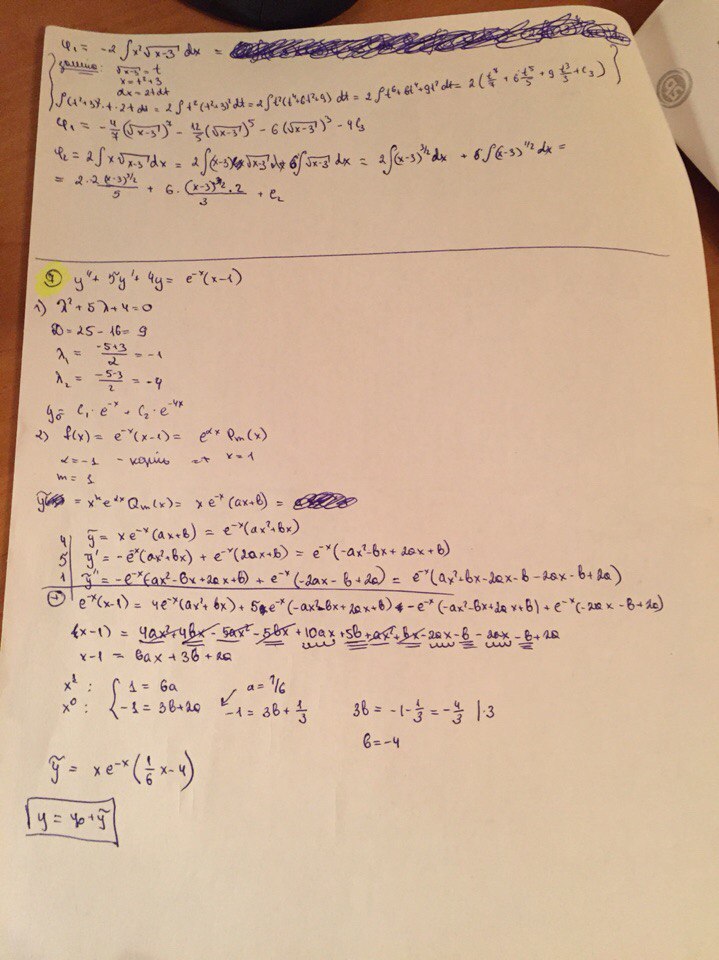 φ₁ = -2 ∫ x² √x-3 dx =
заміна: √x-3 = t
x = t²+3
dx = 2t dt
∫(t²+3)²·t·2t dt = 2∫t²(t²+3)² dt = 2∫t²(t⁴+6t²+9) dt = 2∫t⁶+6t⁴+9t² dt = 2(t⁷/7 + 6t⁵/5 + 9t³/3 + C₃)
φ₁ = -4/7(√x-3)⁷ - 12/5(√x-3)⁵ - 6(√x-3)³ - 4C₃
φ₂ = 2∫x√x-3 dx = 2∫(x-3)√x-3 dx + 6∫√x-3 dx = 2∫(x-3)^3/2 dx + 6∫(x-3)^1/2 dx =
= 2·2(x-3)^5/2 / 5 + 6·(x-3)^3/2·2 / 3 + C₂
7 y'' + 5y' + 4y = e⁻ˣ(x-1)
1) λ² + 5λ + 4 = 0
D = 25 - 16 = 9
λ₁ = -5+3 / 2 = -1
λ₂ = -5-3 / 2 = -4
y₀ = C₁·e⁻ˣ + C₂·e⁻⁴ˣ
2) f(x) = e⁻ˣ(x-1) = e^αx Pm(x)
α = -1 - корінь => x = 1
m = 1
ỹ = xᵏ e^αx Qm(x) = x e⁻ˣ(ax+b) =
4 ỹ = x e⁻ˣ(ax+b) = e⁻ˣ(ax²+bx)
5 ỹ' = -e⁻ˣ(ax²+bx) + e⁻ˣ(2ax+b) = e⁻ˣ(-ax²-bx+2ax+b)
1 ỹ'' = -e⁻ˣ(-ax²-bx+2ax+b) + e⁻ˣ(-2ax-b+2a) = e⁻ˣ(ax²+bx-2ax-b-2ax-b+2a)
(+) e⁻ˣ(x-1) = 4e⁻ˣ(ax²+bx) + 5e⁻ˣ(-ax²-bx+2ax+b) - e⁻ˣ(-ax²-bx+2ax+b) + e⁻ˣ(-2ax-b+2a)
(x-1) = 4ax²+4bx-5ax²-5bx+10ax+5b+ax²+bx-2ax-b-2ax-b+2a
x-1 = 6ax+3b+2a
x¹: { 1 = 6a a = 1/6
x⁰: { -1 = 3b+2a -1 = 3b + 1/3 3b = -1 - 1/3 = -4/3 |·3
b = -4
ỹ = x e⁻ˣ(1/6 x - 4)
y = y₀ + ỹ